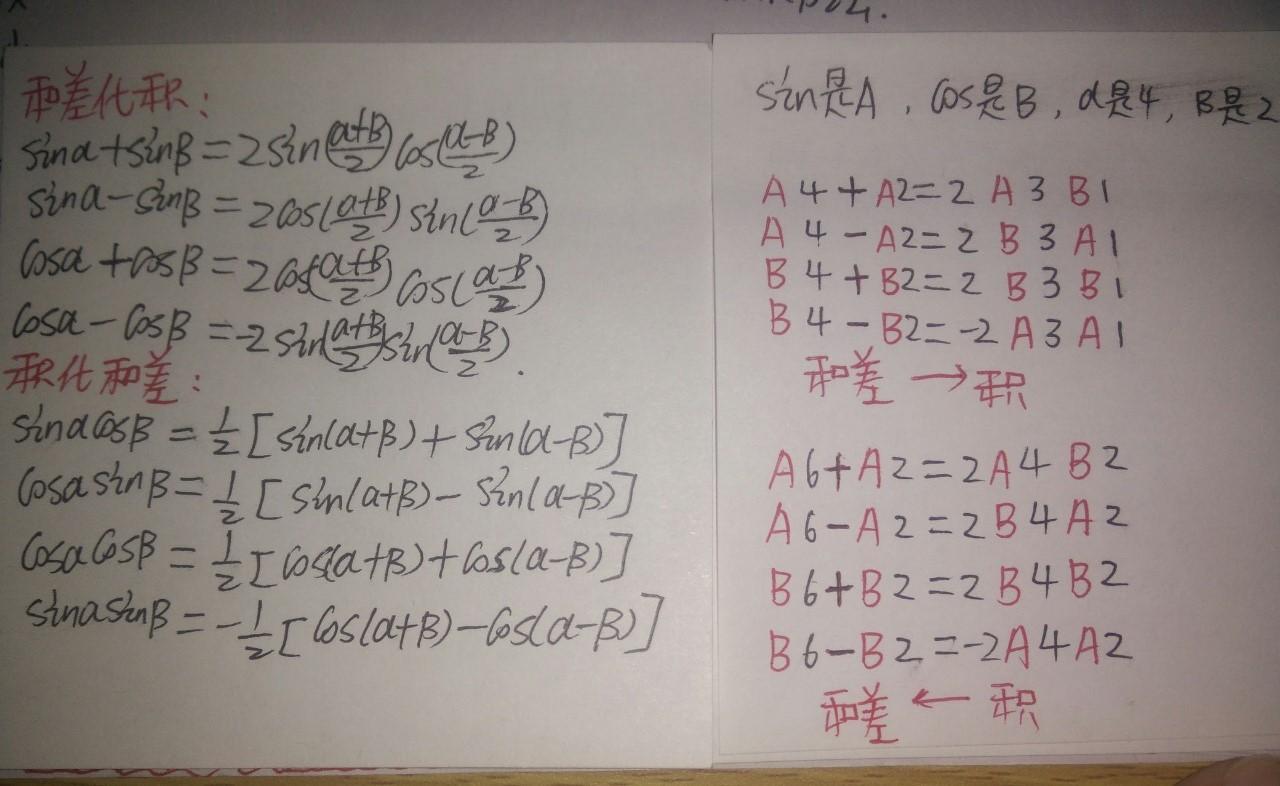 和差化积：
sinα+sinβ=2sin(α+β/2)cos(α-β/2)
sinα-sinβ=2cos(α+β/2)sin(α-β/2)
cosα+cosβ=2cos(α+β/2)cos(α-β/2)
cosα-cosβ=-2sin(α+β/2)sin(α-β/2).
积化和差：
sinαcosβ=1/2[sin(α+β)+sin(α-β)]
cosαsinβ=1/2[sin(α+β)-sin(α-β)]
cosαcosβ=1/2[cos(α+β)+cos(α-β)]
sinαsinβ=-1/2[cos(α+β)-cos(α-β)]
sin是A，cos是B，α是4，β是2
A4+A2=2A3B1
A4-A2=2B3A1
B4+B2=2B3B1
B4-B2=-2A3A1
和差→积
A6+A2=2A4B2
A6-A2=2B4A2
B6+B2=2B4B2
B6-B2=-2A4A2
和差←积